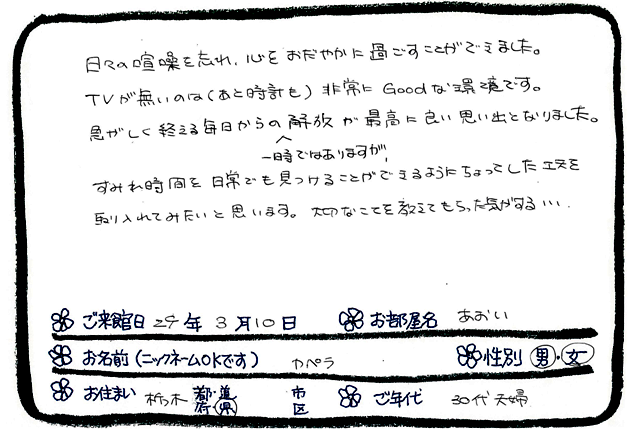 日々の喧噪を忘れ、心をおだやかに過ごすことができました。
TVが無いのは(あと時計も)非常にGoodな環境です。
急がしく終える毎日からの解放が最高に良い思い出となりました。
一時ではありますが、
すみれ時間を日常でも見つけることができるようにちょっとした工夫を
取り入れてみたいと思います。大切なことを教えてもらった気がする…。
ご来館日 29年 3月10日 お部屋名 あおい
お名前(ニックネームOKです) カペラ 性別 男・女
お住まい 栃木 都・道 府・県 市 区 ご年代 30代夫婦